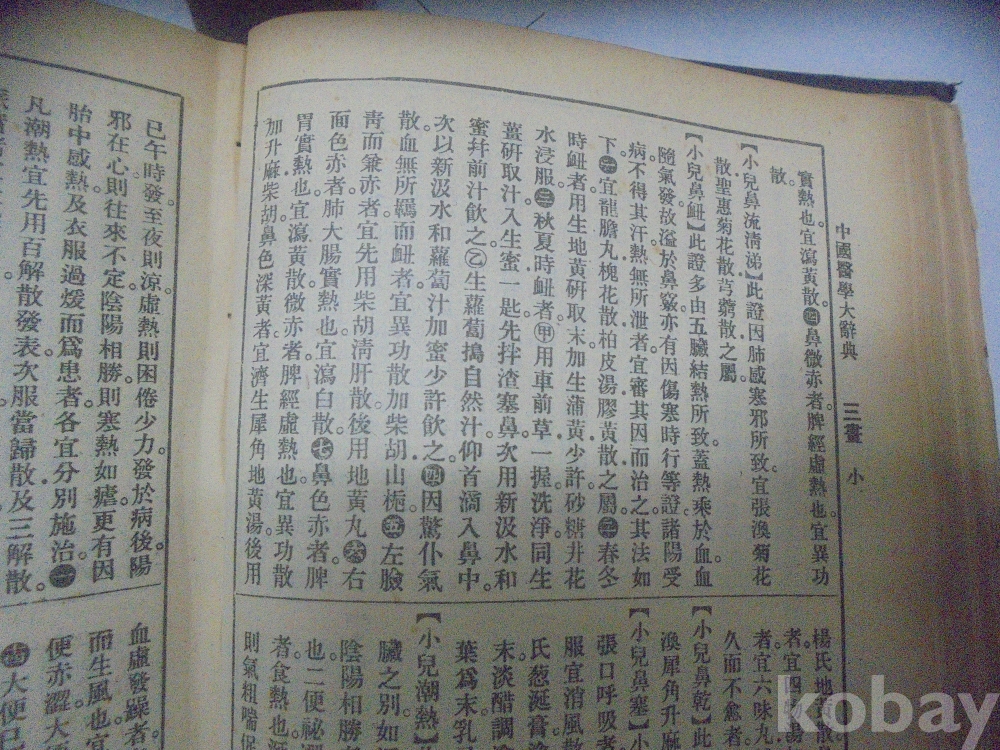 中國醫學大辭典 三畫 小
實熱也。宜瀉黃散。㊃鼻微赤者。脾經虛熱也。宜異功
散。
【小兒鼻流清涕】此證因肺感寒邪所致。宜張渙菊花
散。聖惠菊花散。芎藭散之屬。
【小兒鼻衄】此證多由五臟結熱所致。蓋熱乘於血。血
隨氣發。故溢於鼻竅。亦有因傷寒時行等證。諸陽受
病。不得其汗。熱無所泄者。宜審其因而治之。其法如
下。㊀宜龍膽丸。槐花散。柏皮湯。膠黃散之屬。㊁春冬
時衄者。用生地黃研取末。加生蒲黃少許。砂糖井花
水浸服。㊂秋夏時衄者。㊙用車前草一握洗淨。同生
薑研取汁。入生蜜一匙。先拌渣塞鼻。次用新汲水和
蜜幷前汁飲之。乙生蘿蔔搗自然汁。仰首滴入鼻中。
次以新汲水和蘿蔔汁。加蜜少許飲之。㊃因驚仆氣
散。血無所羈而衄者。宜異功散加柴胡山梔。㊄左臉
靑而兼赤者。宜先用柴胡淸肝散。後用地黃丸。㊅右
面色赤者。肺大腸實熱也。宜瀉白散。㊆鼻色赤者。脾
胃實熱也。宜瀉黃散。微赤者。脾經虛熱也。宜異功散
加升麻柴胡。鼻色深黃者。宜濟生犀角地黃湯。後用
楊氏地黃散
者。宜四
者。宜六味丸
久而不愈者
【小兒鼻乾】此
渙犀角升麻
【小兒鼻塞】小
張口呼吸
服宜消風散
氏葱涎膏
末。淡醋調
葉爲末。乳
【小兒潮熱】
臟之別。如
陰陽相勝
也。二便祕
者。食熱也。
則氣粗喘促
巳午時發。至夜則涼。虛熱則困倦少力。發於病後。陽
邪在心。則往來不定。陰陽相勝。則寒熱如瘧。更有因
胎中感熱。及衣服過煖而爲患者。各宜分別施治。㊀
凡潮熱。宜先用百解散發表。次服當歸散。及三解散
血虛發躁者
而生風也。宜
便赤澀。大便
大便
kobay